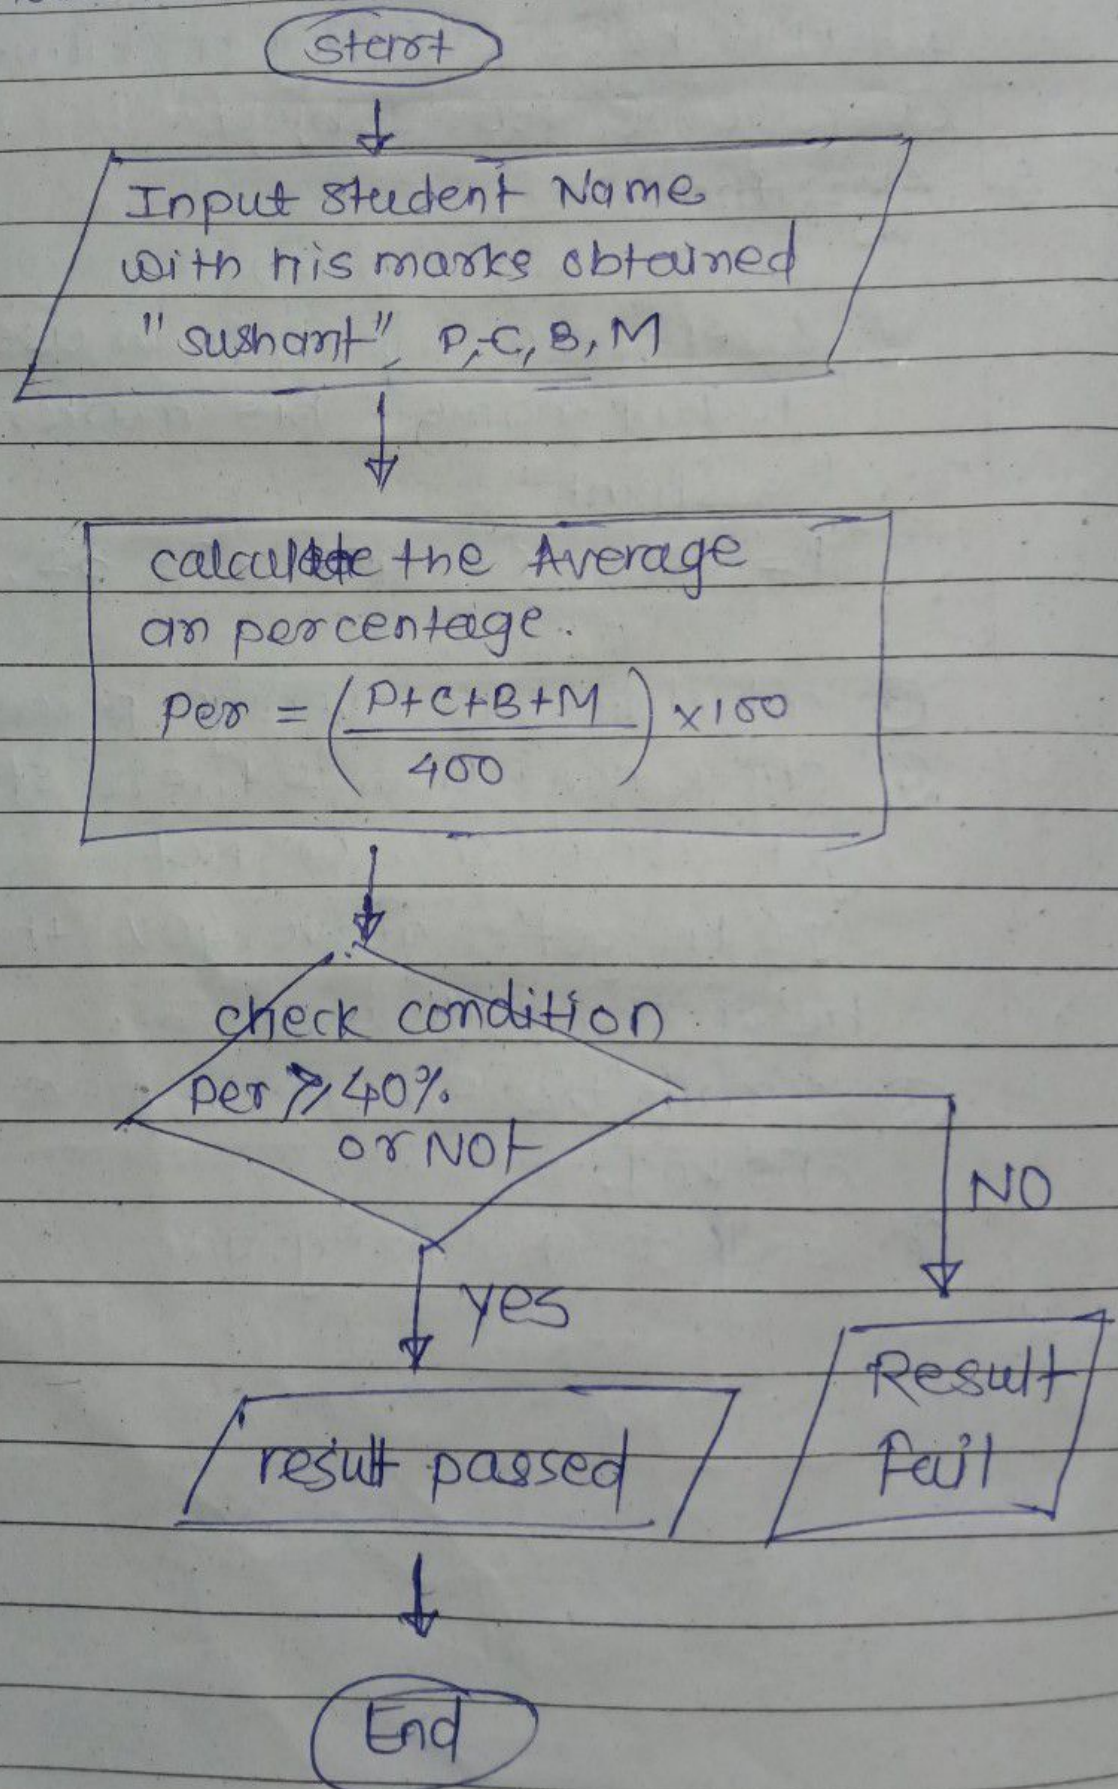 Start
Input Student Name
with his marks obtained
"sushant", P, C, B, M
calculate the Average
an percentage.
Per = (P+C+B+M / 400) ×100
check condition
Per ≥ 40%
or NOt
NO
yes
Result
Fail
result passed
End